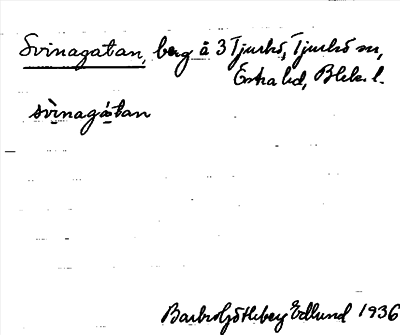 Svinagatan, berg å 3 Tjurkö, Tjurkö sn,
Östra hd, Blek. l.
svìnagátan
Barbro Götheberg Edlund 1936